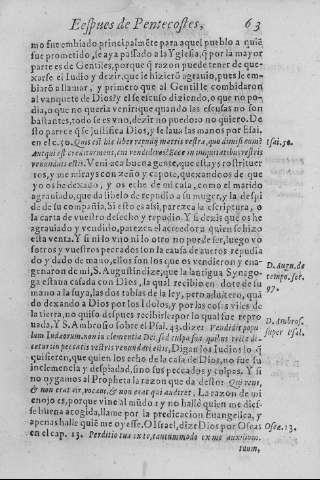 Despues de Pentecostes, 63
mo fue embiado principalmẽte para aquel pueblo a quiẽ
fue prometido, se aya passado a la Yglesia, q̃ por la mayor
parte es de Gentiles, porque q̃ razon puede tener de que-
xarse el Iudio y dezir, que le hizierõ agrauio, pues le em-
biarõ a llamar, y primero que al Gentil le combidaron
al vanquete de Dios y el se escuso diziendo, o que no po-
dia, o que no queria venir: que quando las escusas no son
bastantes, todo se es vno, dezir no puedo o no quiero. De
sto parte q̃ se justifica Dios, y se laua las manos por Esai.
en el c. 50. Quis est hic liber repudij matris vestræ, quo dimisi eam? Esai. 50.
Aut quis est creditor meus, cui vendidi vos? Ecce in iniquitatibus vestris
venundati estis. Veni aca buena gente, que estays rostrituer
tos, y me mirays con zeño y capote, quexandoos de que
yo os he dexado, y os eche de mi casa, como el marido
agrauiado, que da libelo de repudio a su muger, y la despi
de de su compañia. Si esto es assi, parezca la escriptura, o
la carta de vuestro desecho y repudio. Y si dezis que os he
agrauiado y vendido, parezca el acreedor a quien se hizo
esta venta. Y si ni lo vno ni lo otro no puede ser, luego vo
sotros y vuestros peccados son la causa de aueros repudia
do y dado de mano, ellos son los que os vendieron y ena-
genaron de mi, S. Augustin dize, que la antigua Synago- D. Aug. de
ga estaua casada con Dios, la qual recibio en dote de su tempo. ser.
mano a la suya, las dos tablas de la ley, pero adultero, quã 97.
do dexando a Dios por los Idolos, y por las cosas viles de
la tierra, no quiso despues recibirle: por lo qual fue repro
uada, Y S. Ambrosio sobre el Psal. 43. dize: Vendidit popu D. Ambros.
lum Iudæorum non inclementia Dei sed culpa sua. quibus recte di- super Psal.
citur: in peccatis vestris venundati estis, Digan los Iudios lo q̃
quisieren, que quien los echo de la casa de Dios, no fue su
inclemencia y despiadad, sino sus peccados y culpas. Y si
no oygamos al Propheta la razon que da desto: Quia veni,
& non erat vir, vocaui, & non erat qui audiret. La razon de mi
enojo es, porque vine al mũdo y no halle quien me dies-
se buena acogida, llame por la predicacion Euangelica, y
apenas halle quiẽ me oyesse. O Israel, dize Dios por Oseas Oseæ. 13.
en el cap. 13. Perditio tua ex te, tantummodo ex me auxilium
tuum.